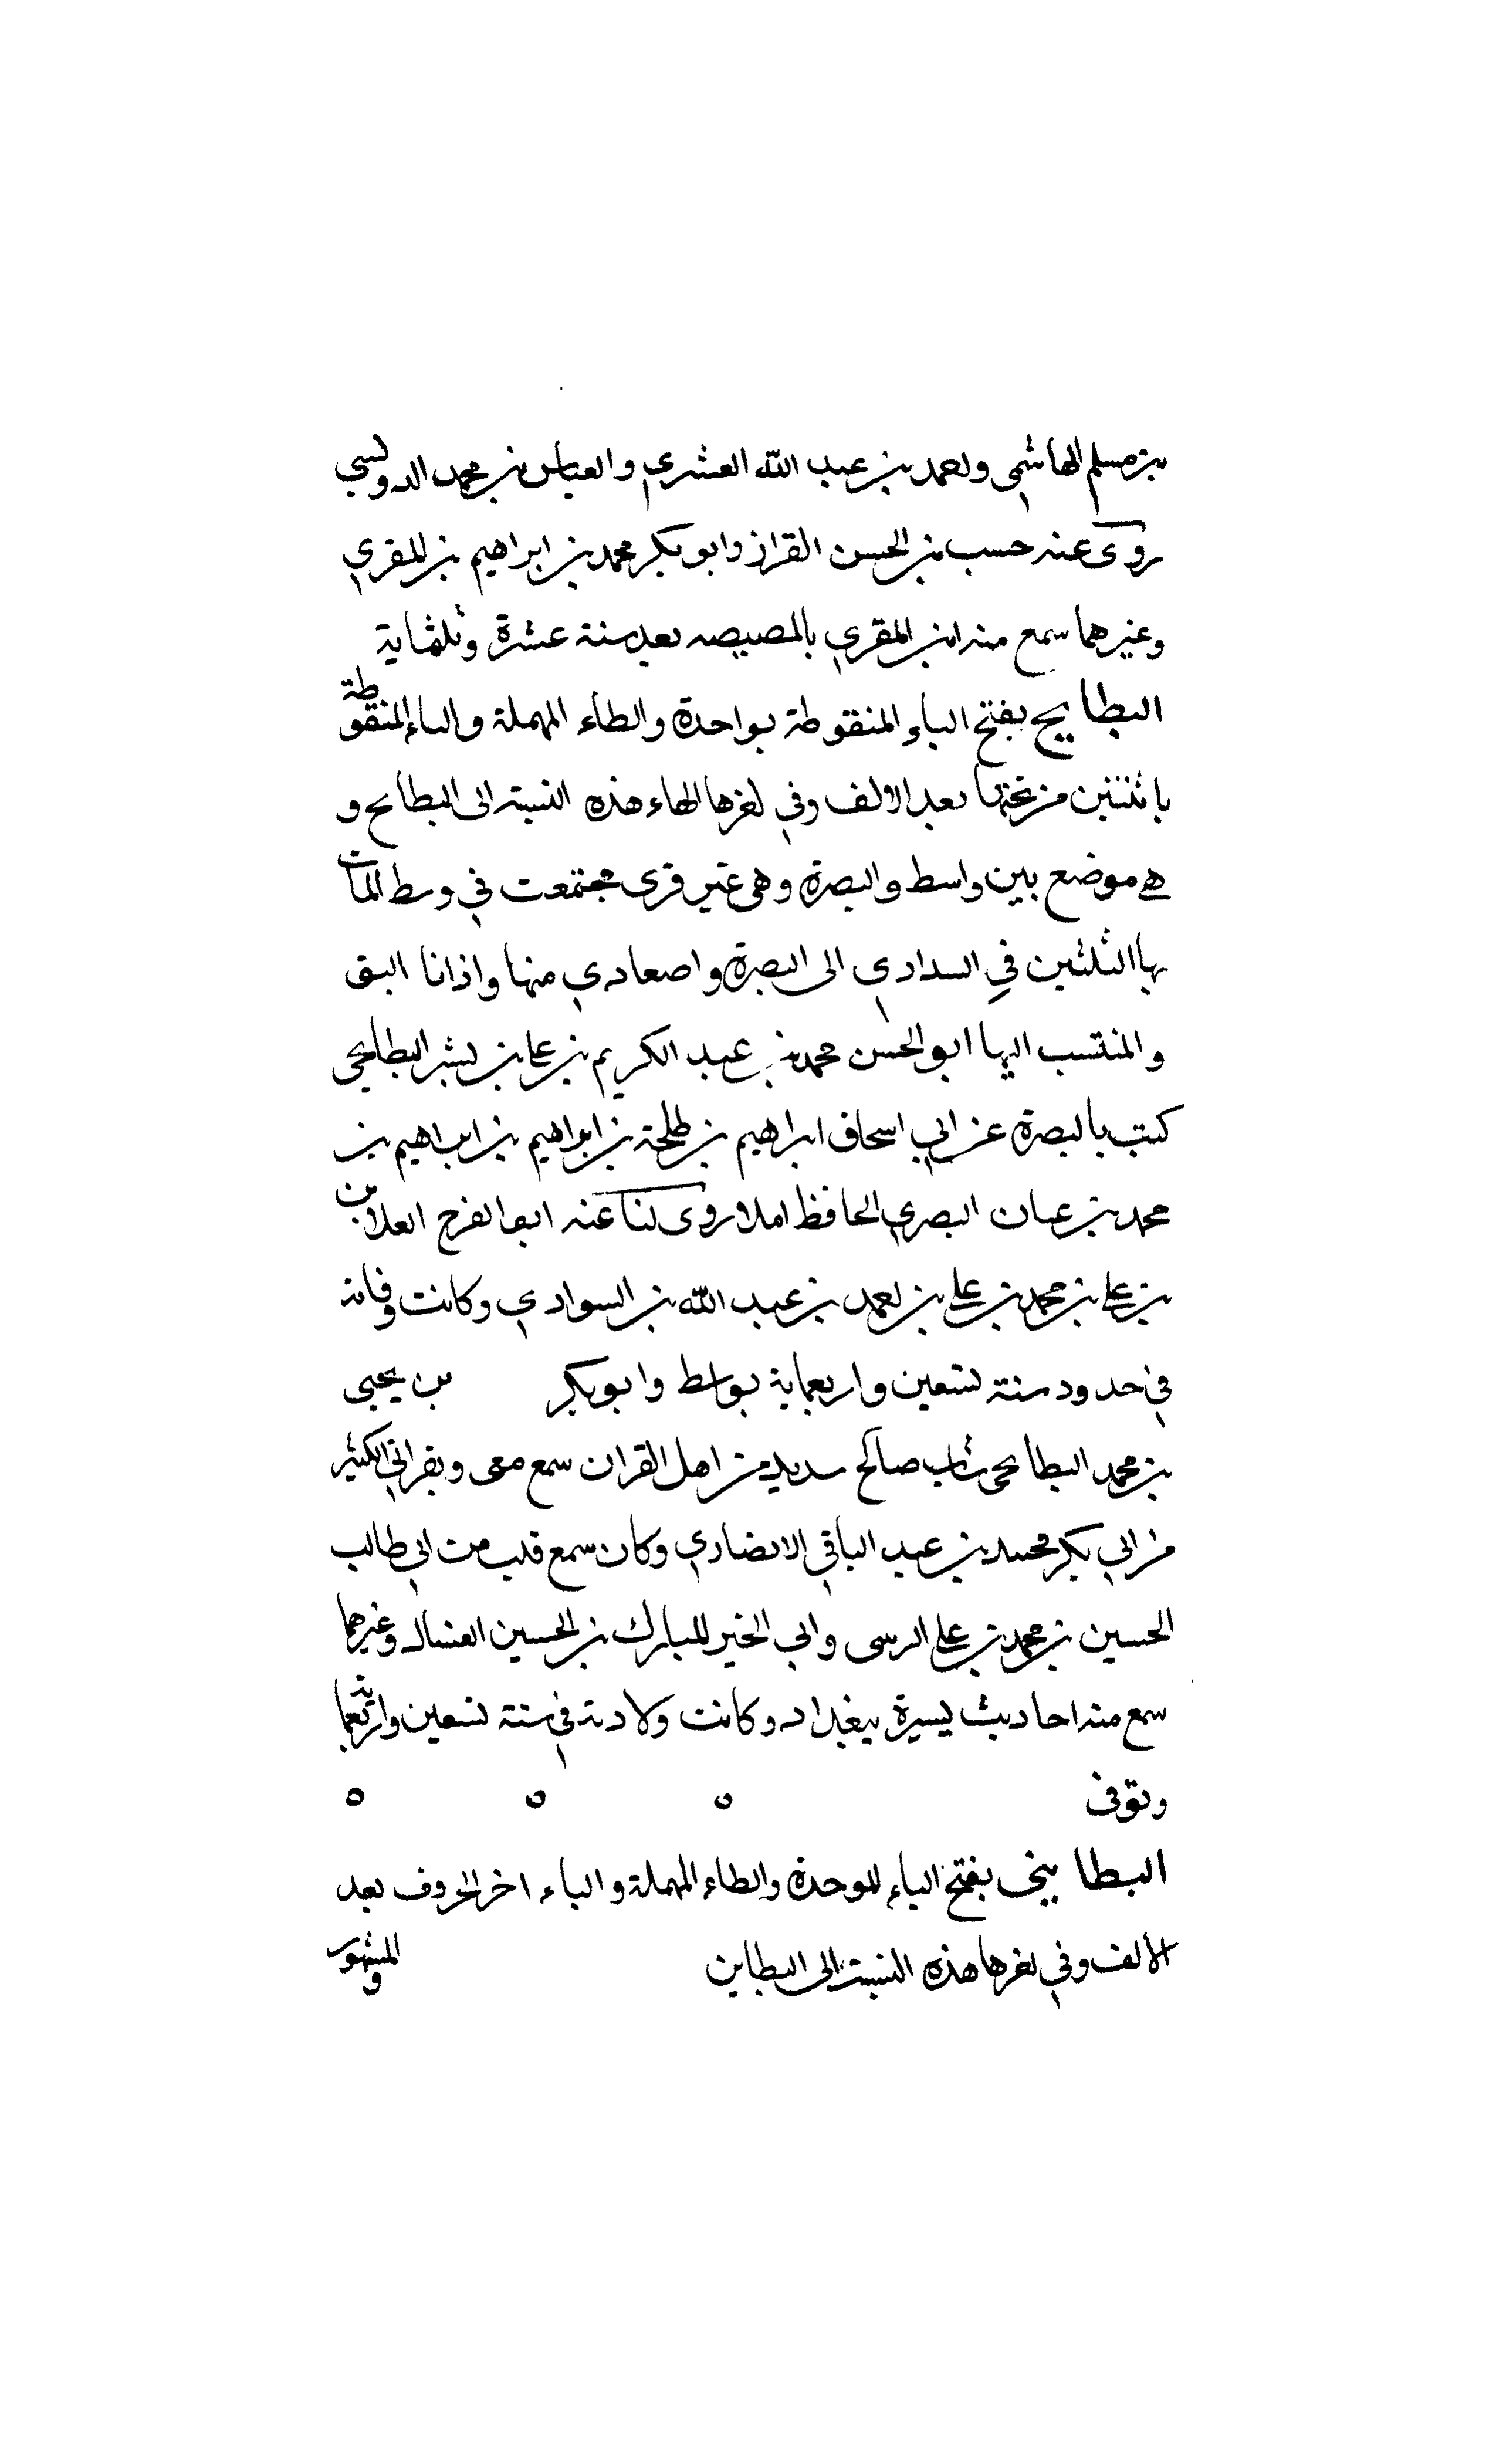 بن مسلم الهاشمى واحمد بن عبد الله العشري والعباس بن محمد الدولسى
روى عنه حسب بن الحسن القزاز وابو بكر محمد بن ابراهيم بن المقري
وغيرهما سمع منه ابن المقري بالمصيصه بعد سنة عشرة وثلثماية
البطايحى بفتح الباء المنقوطة بواحدة والطاء المهملة والياء المنقوطة
باثنتين من تحتها بعد الالف وفي اخرها الحاء هذه النسبة الى البطايح و
هي موضع بين واسط والبصرة وهى عدة قرى مجتمعت في وسط الما
بها الثلثين في انحداري الى البصرة واصعادي منها واذانا البق
والمنتسب اليها ابو الحسن محمد بن عبد الكريم بن على بن بشر البطايحى
كتب بالبصرة عن ابي اسحاق ابراهيم بن طلحة بن ابراهيم بن ابراهيم بن
محمد بن غسان البصري الحافظ املا روى لنا عنه ابو الفرج العلا بن
بن على بن محمد بن على بن احمد بن عبد الله بن السوادي وكانت وفاته
في حدود سنة تسعين واربعماية بواسط وابو بكر بن يحيى
بن محمد البطايحى شاب صالح سديد من اهل القران سمع معى وبقراتي الكثير
من ابي بكر محمد بن عبد الباقي الانصاري وكان سمع قبله من ابي طالب
الحسين بن محمد بن على الزينبى وابي الخير المبارك بن الحسين الغسال وغيرهما
سمع منه احاديث يسيرة ببغداد وكانت ولادته في سنة تسعين واربعماية
وتوفى ه ه ه
البطاينى بفتح الباء الموحدة والطاء المهملة والياء اخر الحروف بعد
الالف وفي اخرها هذه النسبة الى البطاين والمشهور